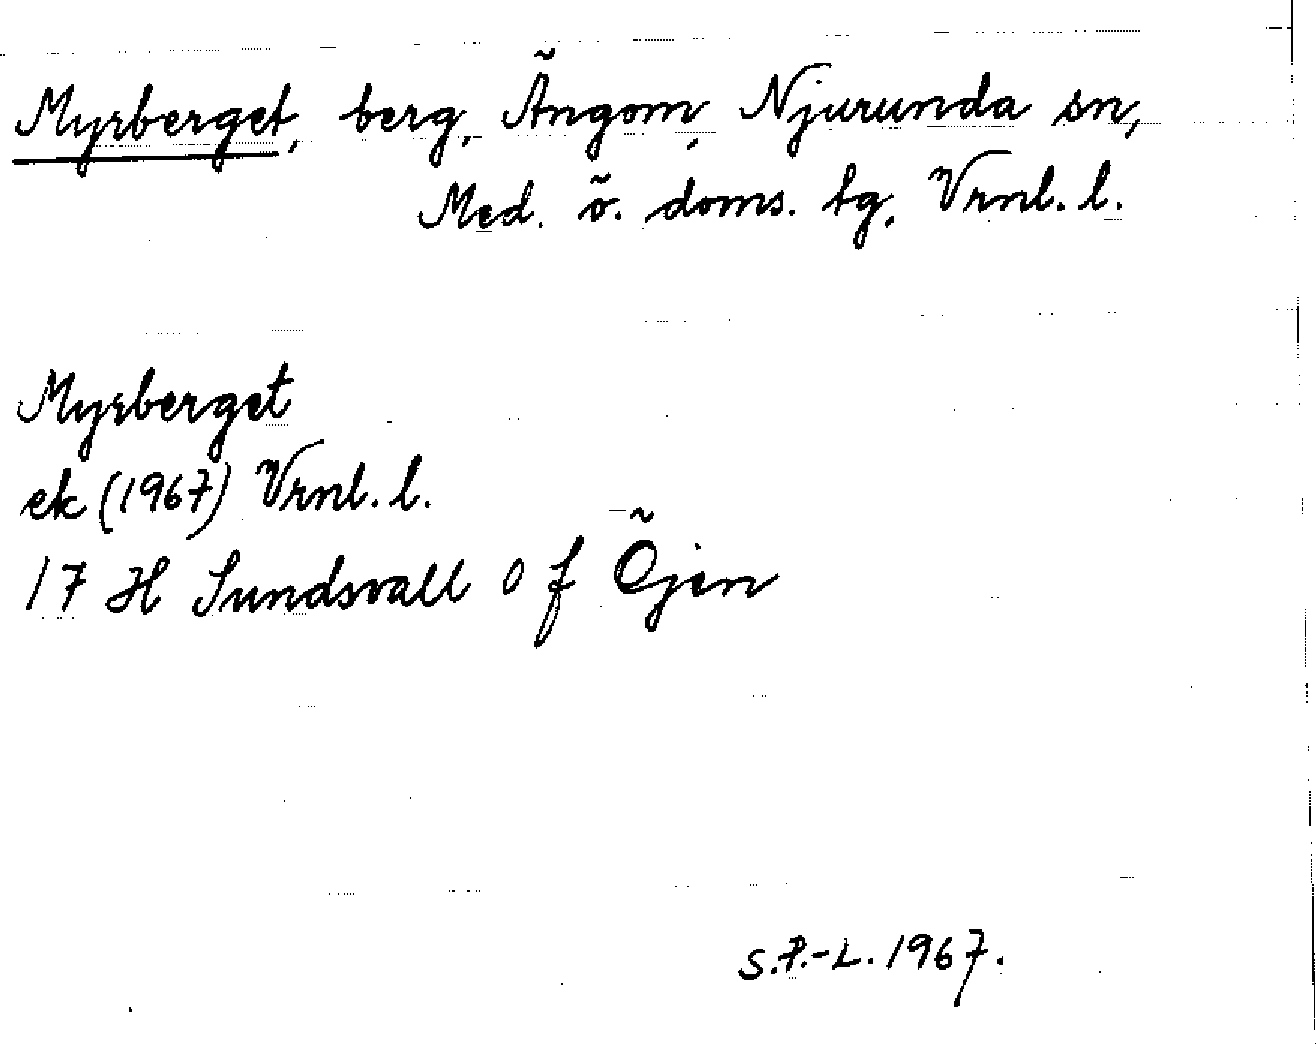 Myrberget, berg, Ängom, Njurunda sn,
Med. ö. doms. tg, Vrnl. l.
Myrberget
ek (1967) Vrnl. l.
17 H Sundsvall o f Öjen
S.P.-L. 1967.